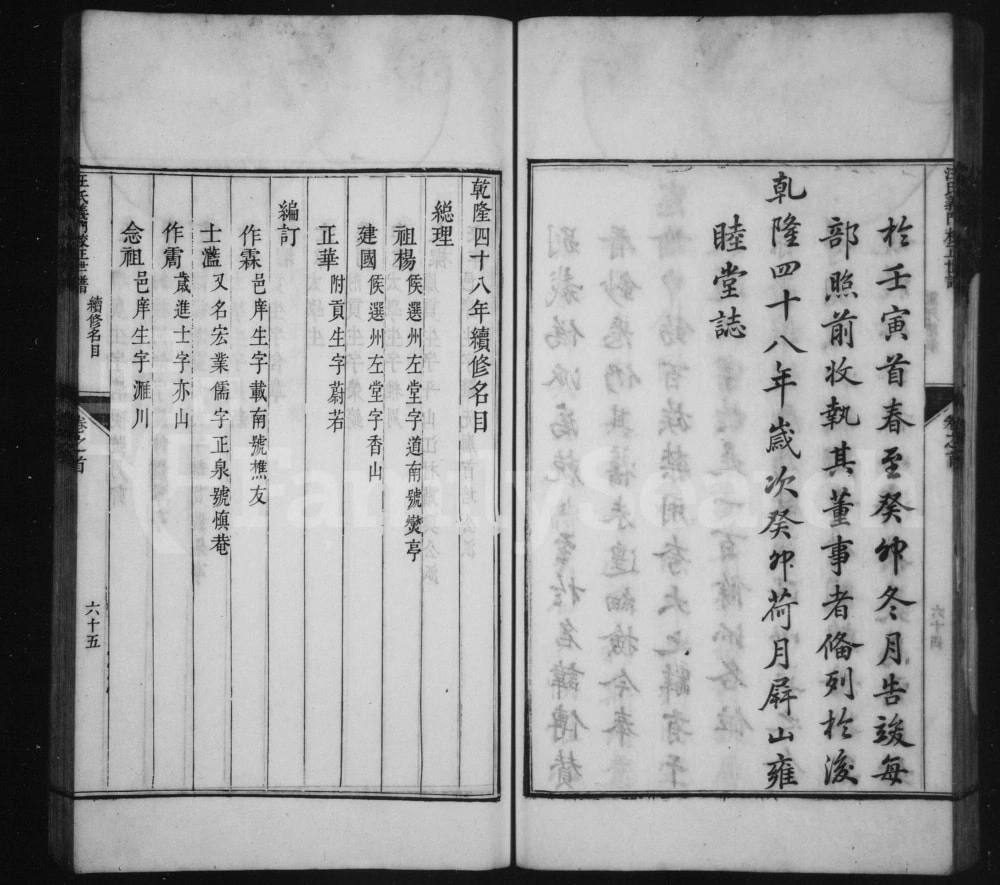 於壬寅首春至癸卯冬月告竣每
部照前收執其董事者俻列於後
乹隆四十八年歲次癸卯荷月屛山雍
睦堂誌
乾隆四十八年續修名目
総理
祖楊 候選州左堂字道南號爕亭
建國 候選州左堂字香山
正華 附貢生字蔚若
編訂
作霖 邑庠生字載南號樵友
士灆 又名宏業儒字正泉號慎菴
作霌 歲進士字亦山
念祖 邑庠生字滙川
汪氏義門世譜 續修名目 卷之首 六十五
FamilySearch